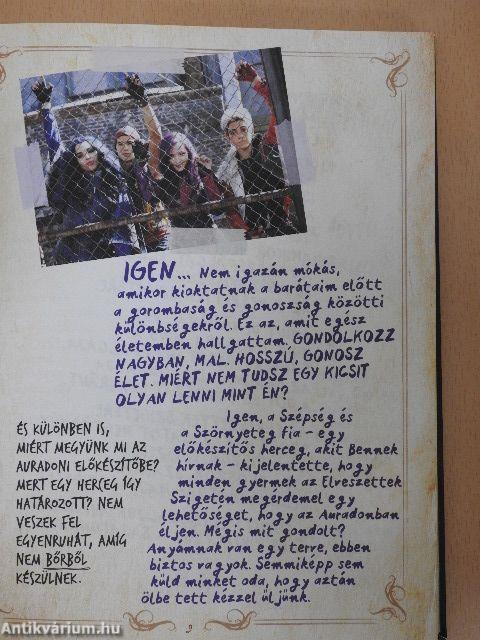 IGEN... Nem igazán mókás,
amikor kioktatnak a barátaim előtt
a gorombaság és gonoszság közötti
különbségekről. Ez az, amit egész
életemben hallgattam. GONDOLKOZZ
NAGYBAN, MAL. HOSSZÚ, GONOSZ
ÉLET. MIÉRT NEM TUDSZ EGY KICSIT
OLYAN LENNI MINT ÉN?
Igen, a Szépség és
a Szörnyeteg fia – egy
előkészítős herceg, akit Bennek
hívnak – kijelentette, hogy
minden gyermek az Elveszettek
Szigetén megérdemel egy
lehetőséget, hogy az Auradonban
éljen. Mégis mit gondolt?
Anyámnak van egy terve, ebben
biztos vagyok. Semmiképp sem
küld minket oda, hogy aztán
ölbe tett kézzel üljünk.
ÉS KÜLÖNBEN IS,
MIÉRT MEGYÜNK MI AZ
AURADONI ELŐKÉSZÍTŐBE?
MERT EGY HERCEG ÍGY
HATÁROZOTT? NEM
VESZEK FEL
EGYENRUHÁT, AMÍG
NEM BŐRBŐL
KÉSZÜLNEK.
9
Antikvárium.hu